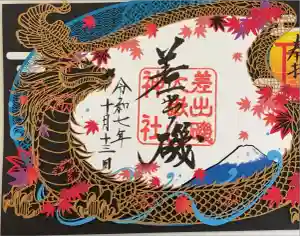 差出磯
差出磯
神社
令和七年
十月十三日